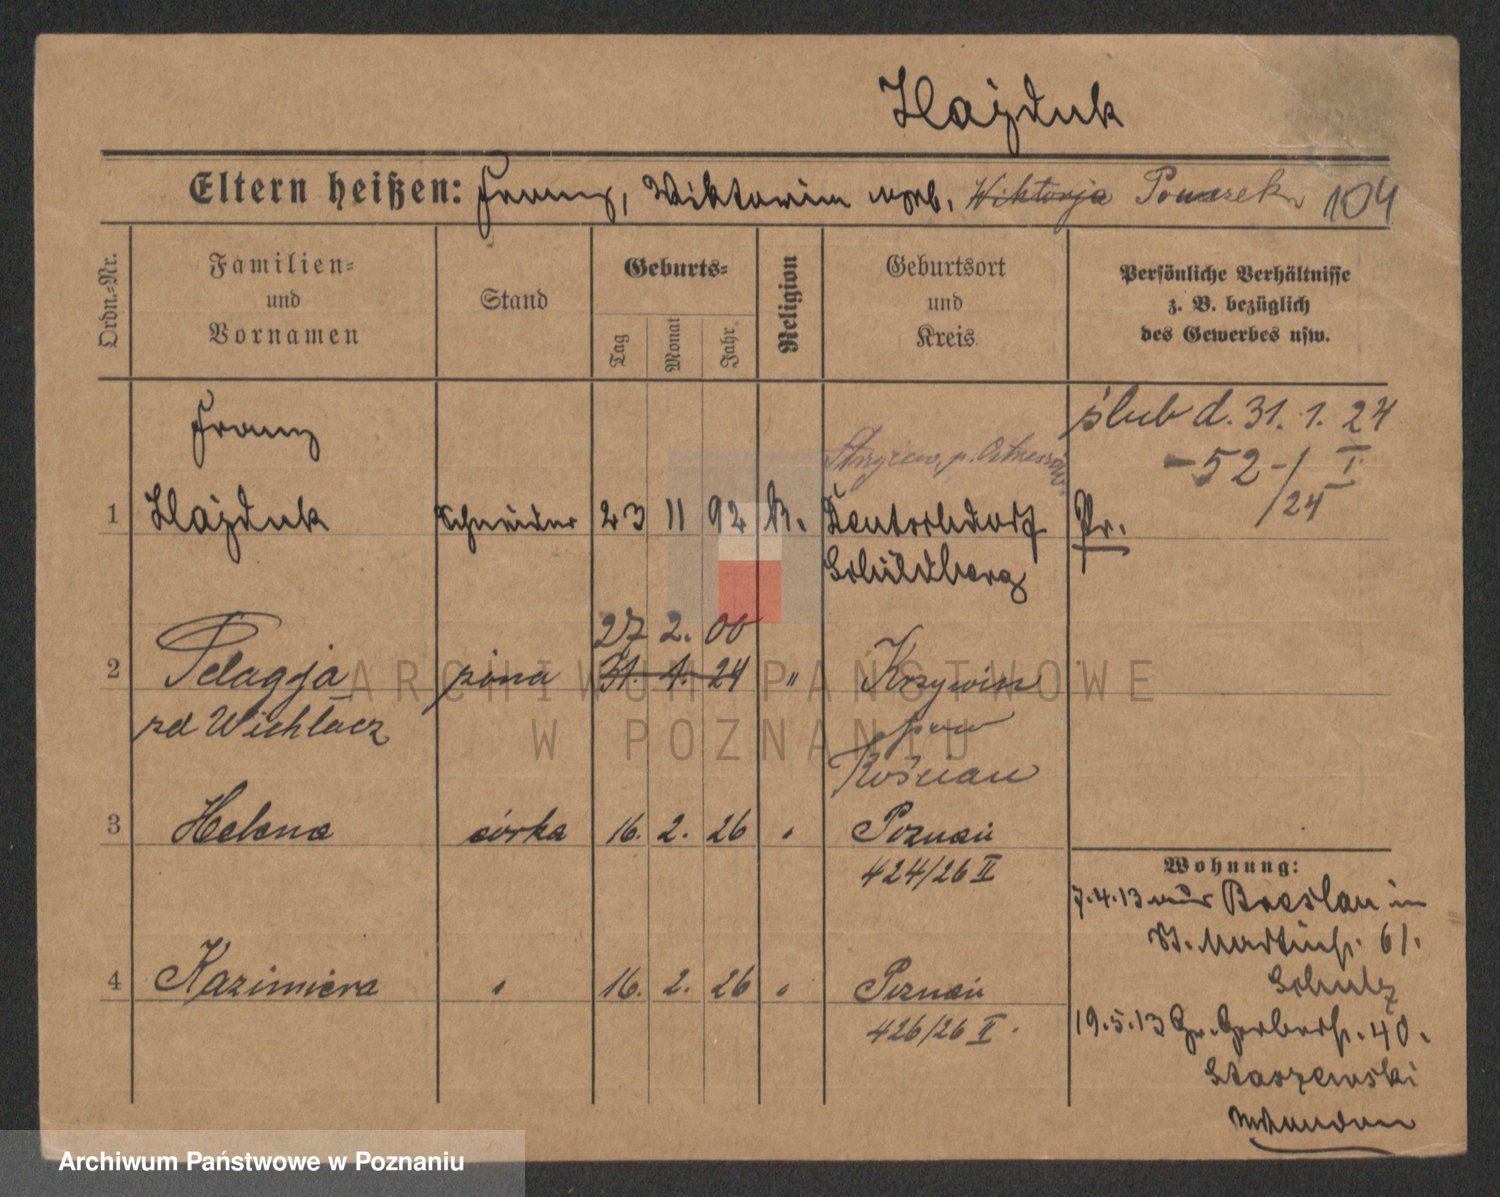 Hajduk
Eltern heißen: Franz, Viktoria geb. Wiktorja Powazek 104
Ordn.=Nr.
Familien=
und
Vornamen
Stand
Geburts=
Tag
Monat
Jahr
Religion
Geburtsort
und
Kreis
Persönliche Verhältnisse
z. B. bezüglich
des Gewerbes usw.
Franz
ślub d. 31. 1. 24
-52-/24 I
Strzyżew, p.
1 Hajduk Schneider 23 11 92 K. Deutschdorf Pr.
Schildberg
27 2. 00
2 Pelagja żona 31. 1. 24 " Krzywin
zd Wichłacz pow
Kościan
3 Helena córka 16. 2. 26 " Poznań
424/26 II
Wohnung:
7.4.13 aus Breslau in
St. Martinstr. 61.
Schulz
4 Kazimiera " 16. 2. 26 " Poznań
426/26 II.
19.5.13 Gr. Gerberstr. 40.
Staszewski
ARCHIWUM PAŃSTWOWE
W POZNANIU
Archiwum Państwowe w Poznaniu